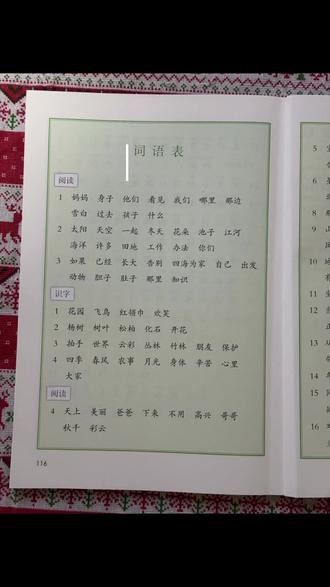 词语表
阅读
1 妈妈 身子 他们 看见 我们 哪里 那边
雪白 过去 孩子 什么
2 太阳 天空 一起 冬天 花朵 池子 江河
海洋 许多 田地 工作 办法 你们
3 如果 已经 长大 告别 四海为家 自己 出发
动物 胆子 肚子 那里 知识
识字
1 花园 飞鸟 红领巾 欢笑
2 杨树 树叶 松柏 化石 开花
3 拍手 世界 云彩 丛林 竹林 朋友 保护
4 四季 春风 农事 月光 身体 辛苦 心里
大家
阅读
4 天上 美丽 爸爸 下来 不用 高兴 哥哥
秋千 彩云
116
5
6
9
10
11
12
13
14
15
16